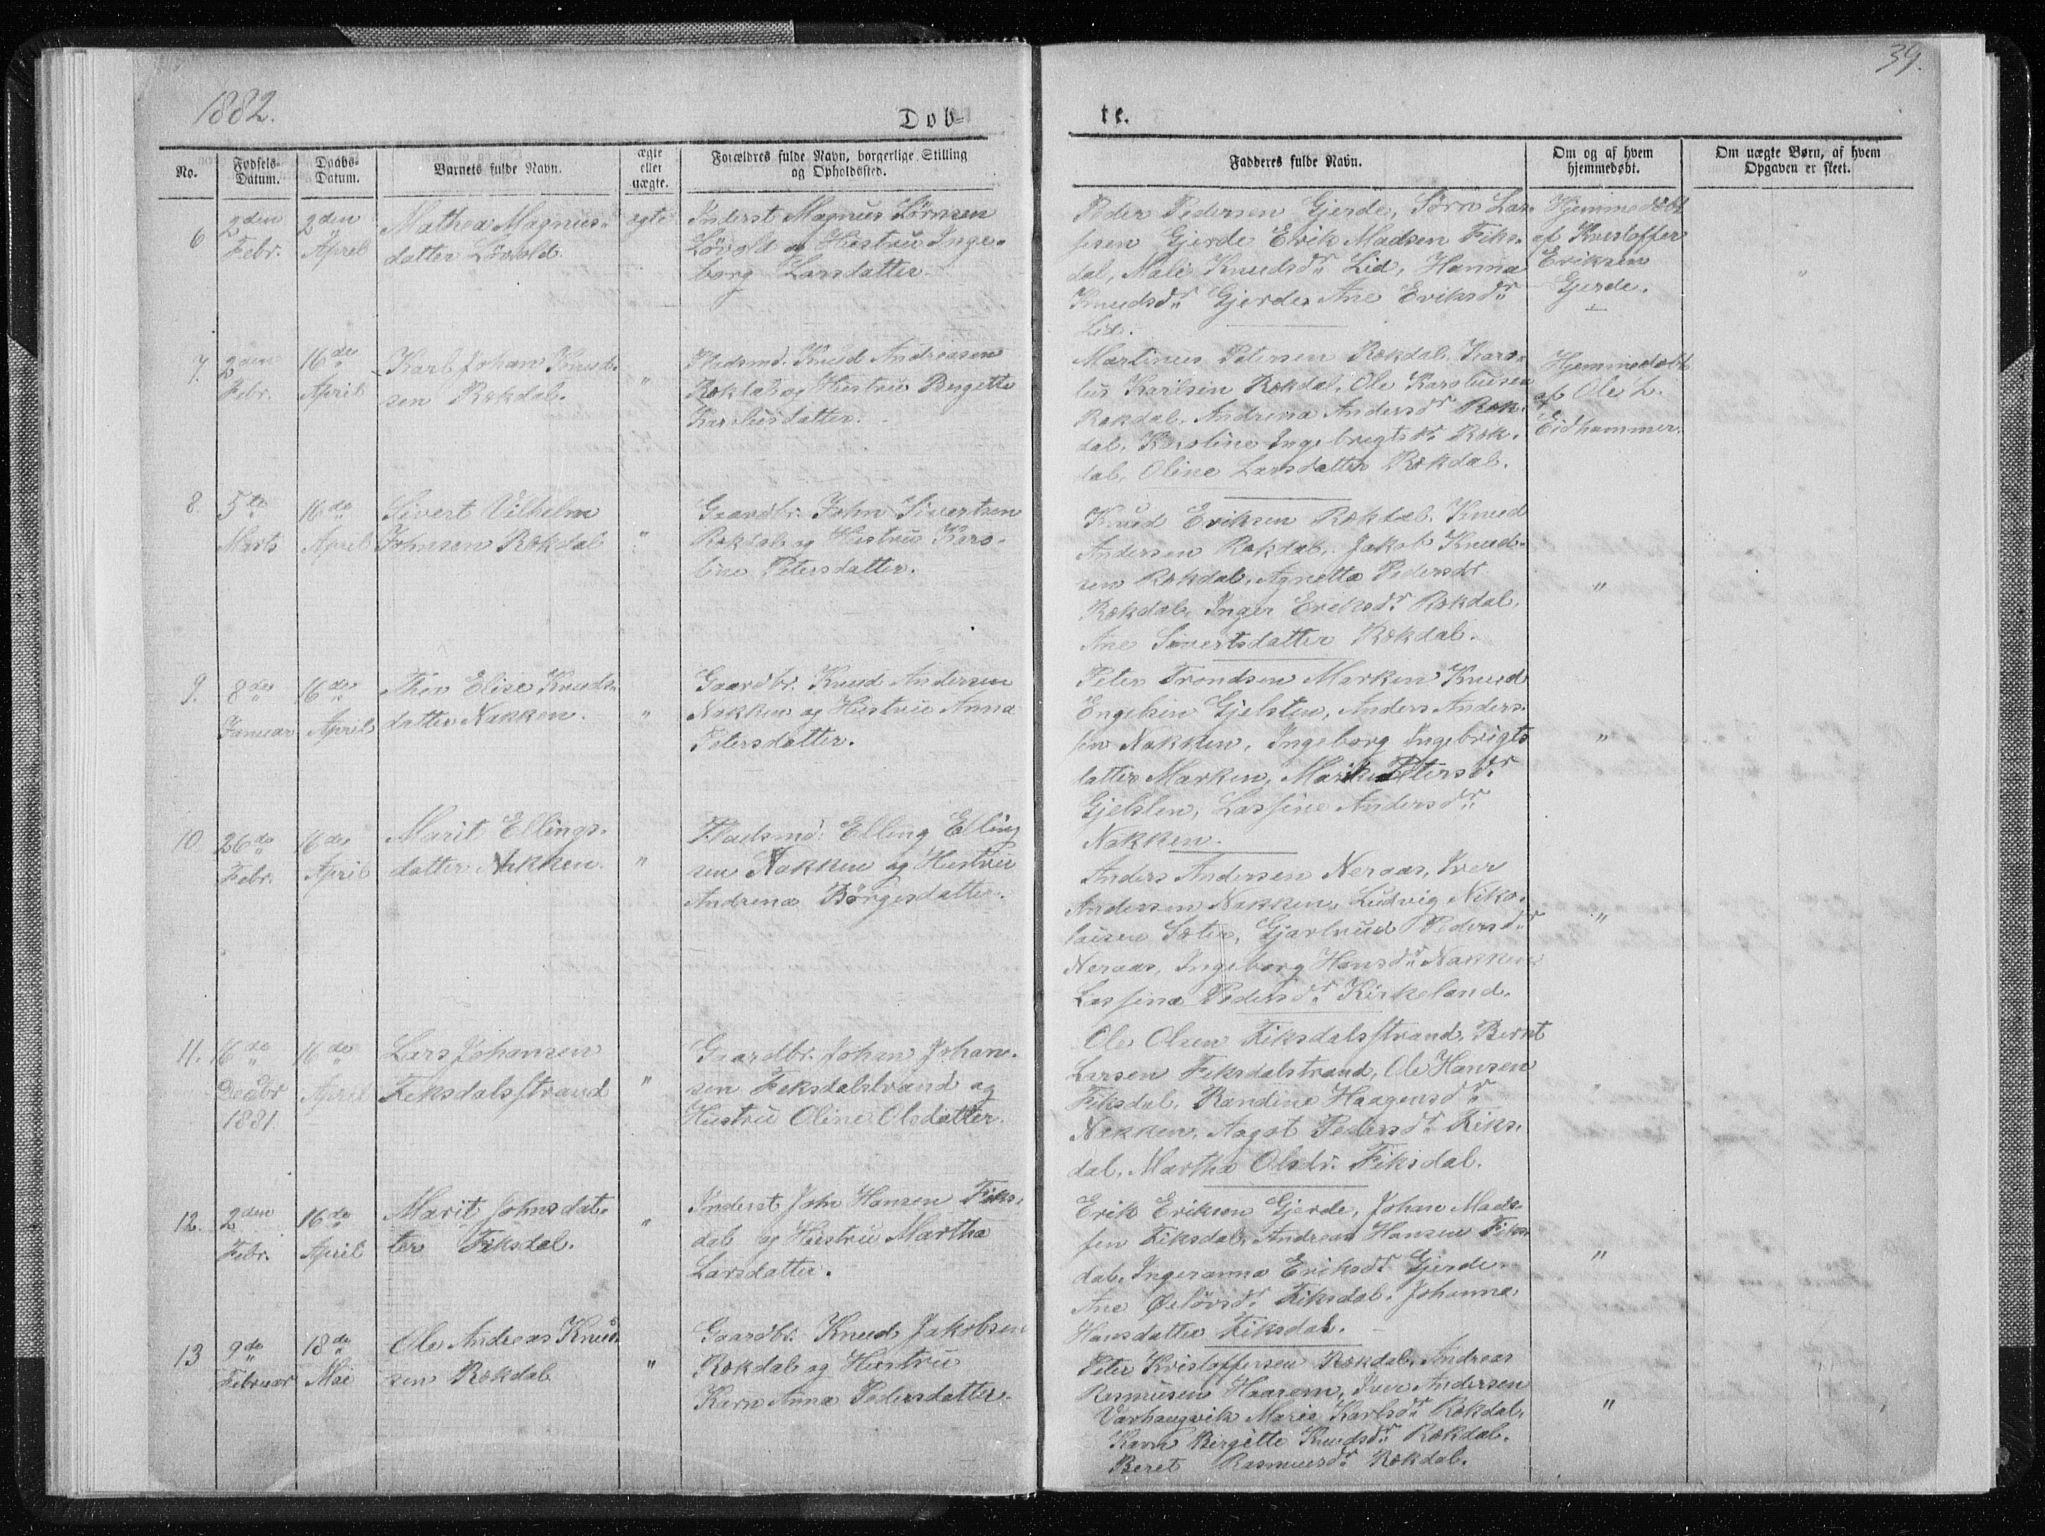 1882.
39.
Døb-
te.
No.
Fødsels-
Datum.
Daabs-
Datum.
Barnets fulde Navn.
ægte
eller
uægte.
Forældres fulde Navn, borgerlige Stilling
og Opholdssted.
Fadderes fulde Navn.
Om og af hvem
hjemmedøbt.
Om uægte Børn, af hvem
Opgaven er skeet.
6
2den
Febr.
2den
April
Mathea Magnus-
datter Lövold.
ægte
Inderst Magnus Sörnsen
Lövold og Hustru Inge-
borg Larsdatter.
Peder Pedersen Gjerde, Sörn Lar-
sen Gjerde Erik Madsen Fiks-
dal, Mali Knudsdr Lid, Hanna
Knudsdr Gjerde, Ane Eriksdr
Lid.
Hjemmedöbt
af Kristoffer
Eriksen
Gjerde.
"
7.
2den
Febr.
16de
April
Karl Johan Knud-
sen Rekdal.
"
Pladsmd. Knud Andreasen
Rekdal og Hustru Birgitte
Karolusdatter.
Martinus Petersen Rekdal, Karo-
lus Karlsen Rekdal, Ole Karolusen
Rekdal, Andrina Andersdr Rek-
dal, Karoline Ingebrigtsdr Rek-
dal, Oline Larsdatter Rekdal.
Hjemmedöbt
af Ole L.
Eidhammer.
8.
5te
Marts
16de
April
Sivert Vilhelm
Johnsen Rekdal
"
Gaardbr. John Sivertsen
Rekdal og Hustru Karo-
line Petersdatter.
Knud Eriksen Rekdal, Knud
Andersen Rekdal, Jakob Knud-
sen Rekdal, Agnetta Pedersdr
Rekdal, Inger Eriksdr Rekdal,
Ane Sivertsdatter Rekdal.
"
9.
8de
Januar
16de
April
Thea Elise Knuds-
datter Nakken.
"
Gaardbr. Knud Andersen
Nakken og Hustru Anna
Petersdatter.
Peter Trondsen Marken Knud
Engelsen Gjelsten, Anders Anders-
sen Nakken, Ingeborg Ingebrigts
datter Marken, Marit Petersdr
Gjelsten, Lassine Andersdr
Nakken.
"
10
26de
Febr.
16de
April
Marit Ellings-
datter Nakken.
"
Pladsmd: Elling Elling
sen Nakken og Hustru
Andrina Börgesdatter.
Anders Andersen Neraas, Iver
Andersen Nakken, Ludvig Niko-
laisen Sæter, Gjertrud Pedersdr
Neraas, Ingeborg Hansdr Nakken
Lassina Pedersdr Kirkeland.
"
11.
16de
Decbr
1881.
16de
April
Lars Johansen
Fiksdalsstrand
"
Gaardbr. Johan Johan-
sen Fiksdalstrand og
Hustru Oline Olsdatter.
Ole Olsen Fiksdalsstrand, Bernt
Larsen Fiksdalstrand, Ole Hansen
Fiksdal, Randine Haagensdr
Nakken, Aagot Pedersdr Fiks-
dal, Martha Olsdr. Fiksdal.
"
12.
2den
Febr.
16de
April
Marit Johnsdat-
ter Fiksdal.
"
Inderst John Hansen Fiks-
dal og Hustru Martha
Larsdatter.
Erik Eriksen Gjerde, Johan Mad-
sen Fiksdal, Andreas Hansen Fiks-
dal, Ingeranna Eriksdr Gjerde
Ane Østövsdr Fiksdal, Johanna
Hansdatter Fiksdal.
"
13
9de
Februar
18de
Mai
Ole Andreas Knud-
sen Rekdal
"
Gaardbr. Knud Jakobsen
Rekdal og Hustru
Karn Anna Pedersdatter.
Peter Kristoffersen Rekdal, Andreas
Rasmusen Haarem, Iver Andersen
Varhaugvik Marie Karlsdr Rekdal,
Karn Birgitte Knudsdr Rekdal.
Beret Rasmusdr Rekdal.
"